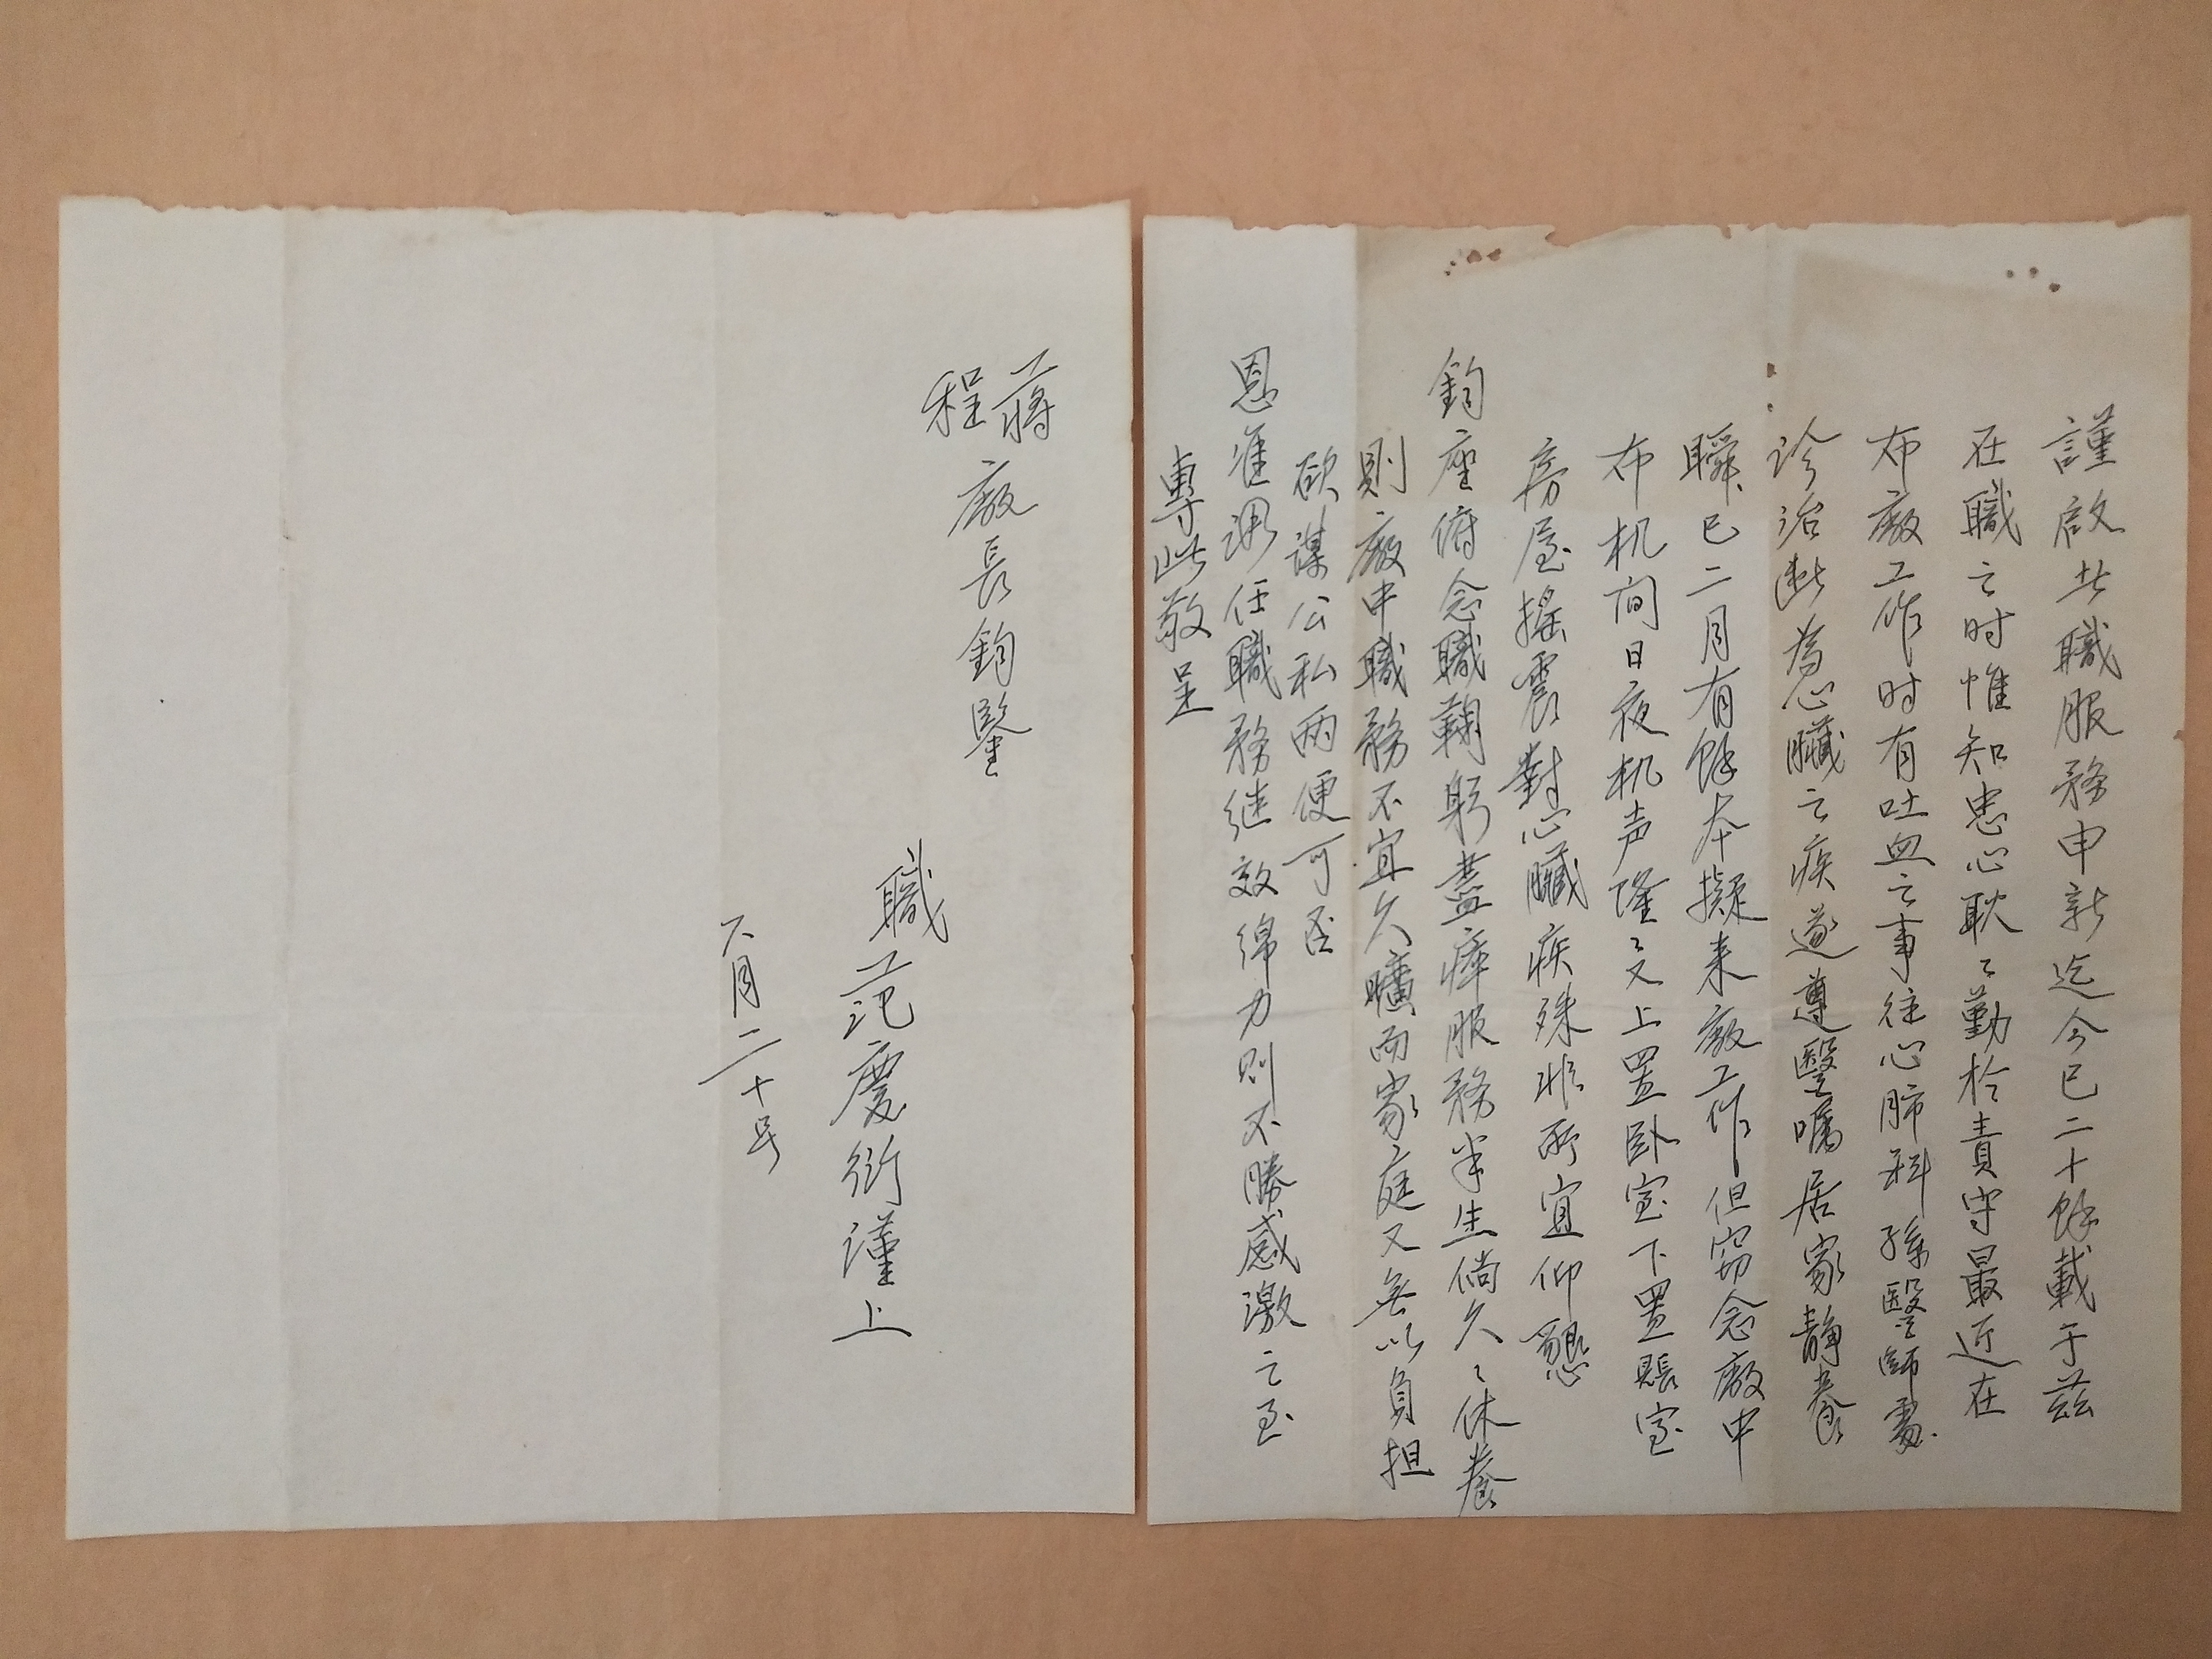 謹啟者職服務申新迄今已二十餘載于茲
在職之时惟知忠心耿〻勤於責守最近在
布廠工作时有吐血之事往心肺科孫醫師處
診治断為心臟之疾遂遵醫囑居家静養
瞬已二月有餘本擬来廠工作但窃念廠中
布机间日夜机声隆〻又上置卧室下置賬室
房屋搖震對心臟疾殊非所宜仰懇
鈞座俯念職鞠躬盡瘁服務半生倘久〻休養
則廠中職務不宜久曠而家庭又無以負担
欲謀公私两便可否
恩准调任職務继效绵力则不勝感激之至
專此敬呈
蔣
程
廠長鈞鑒
職范慶衍谨上
六月二十号